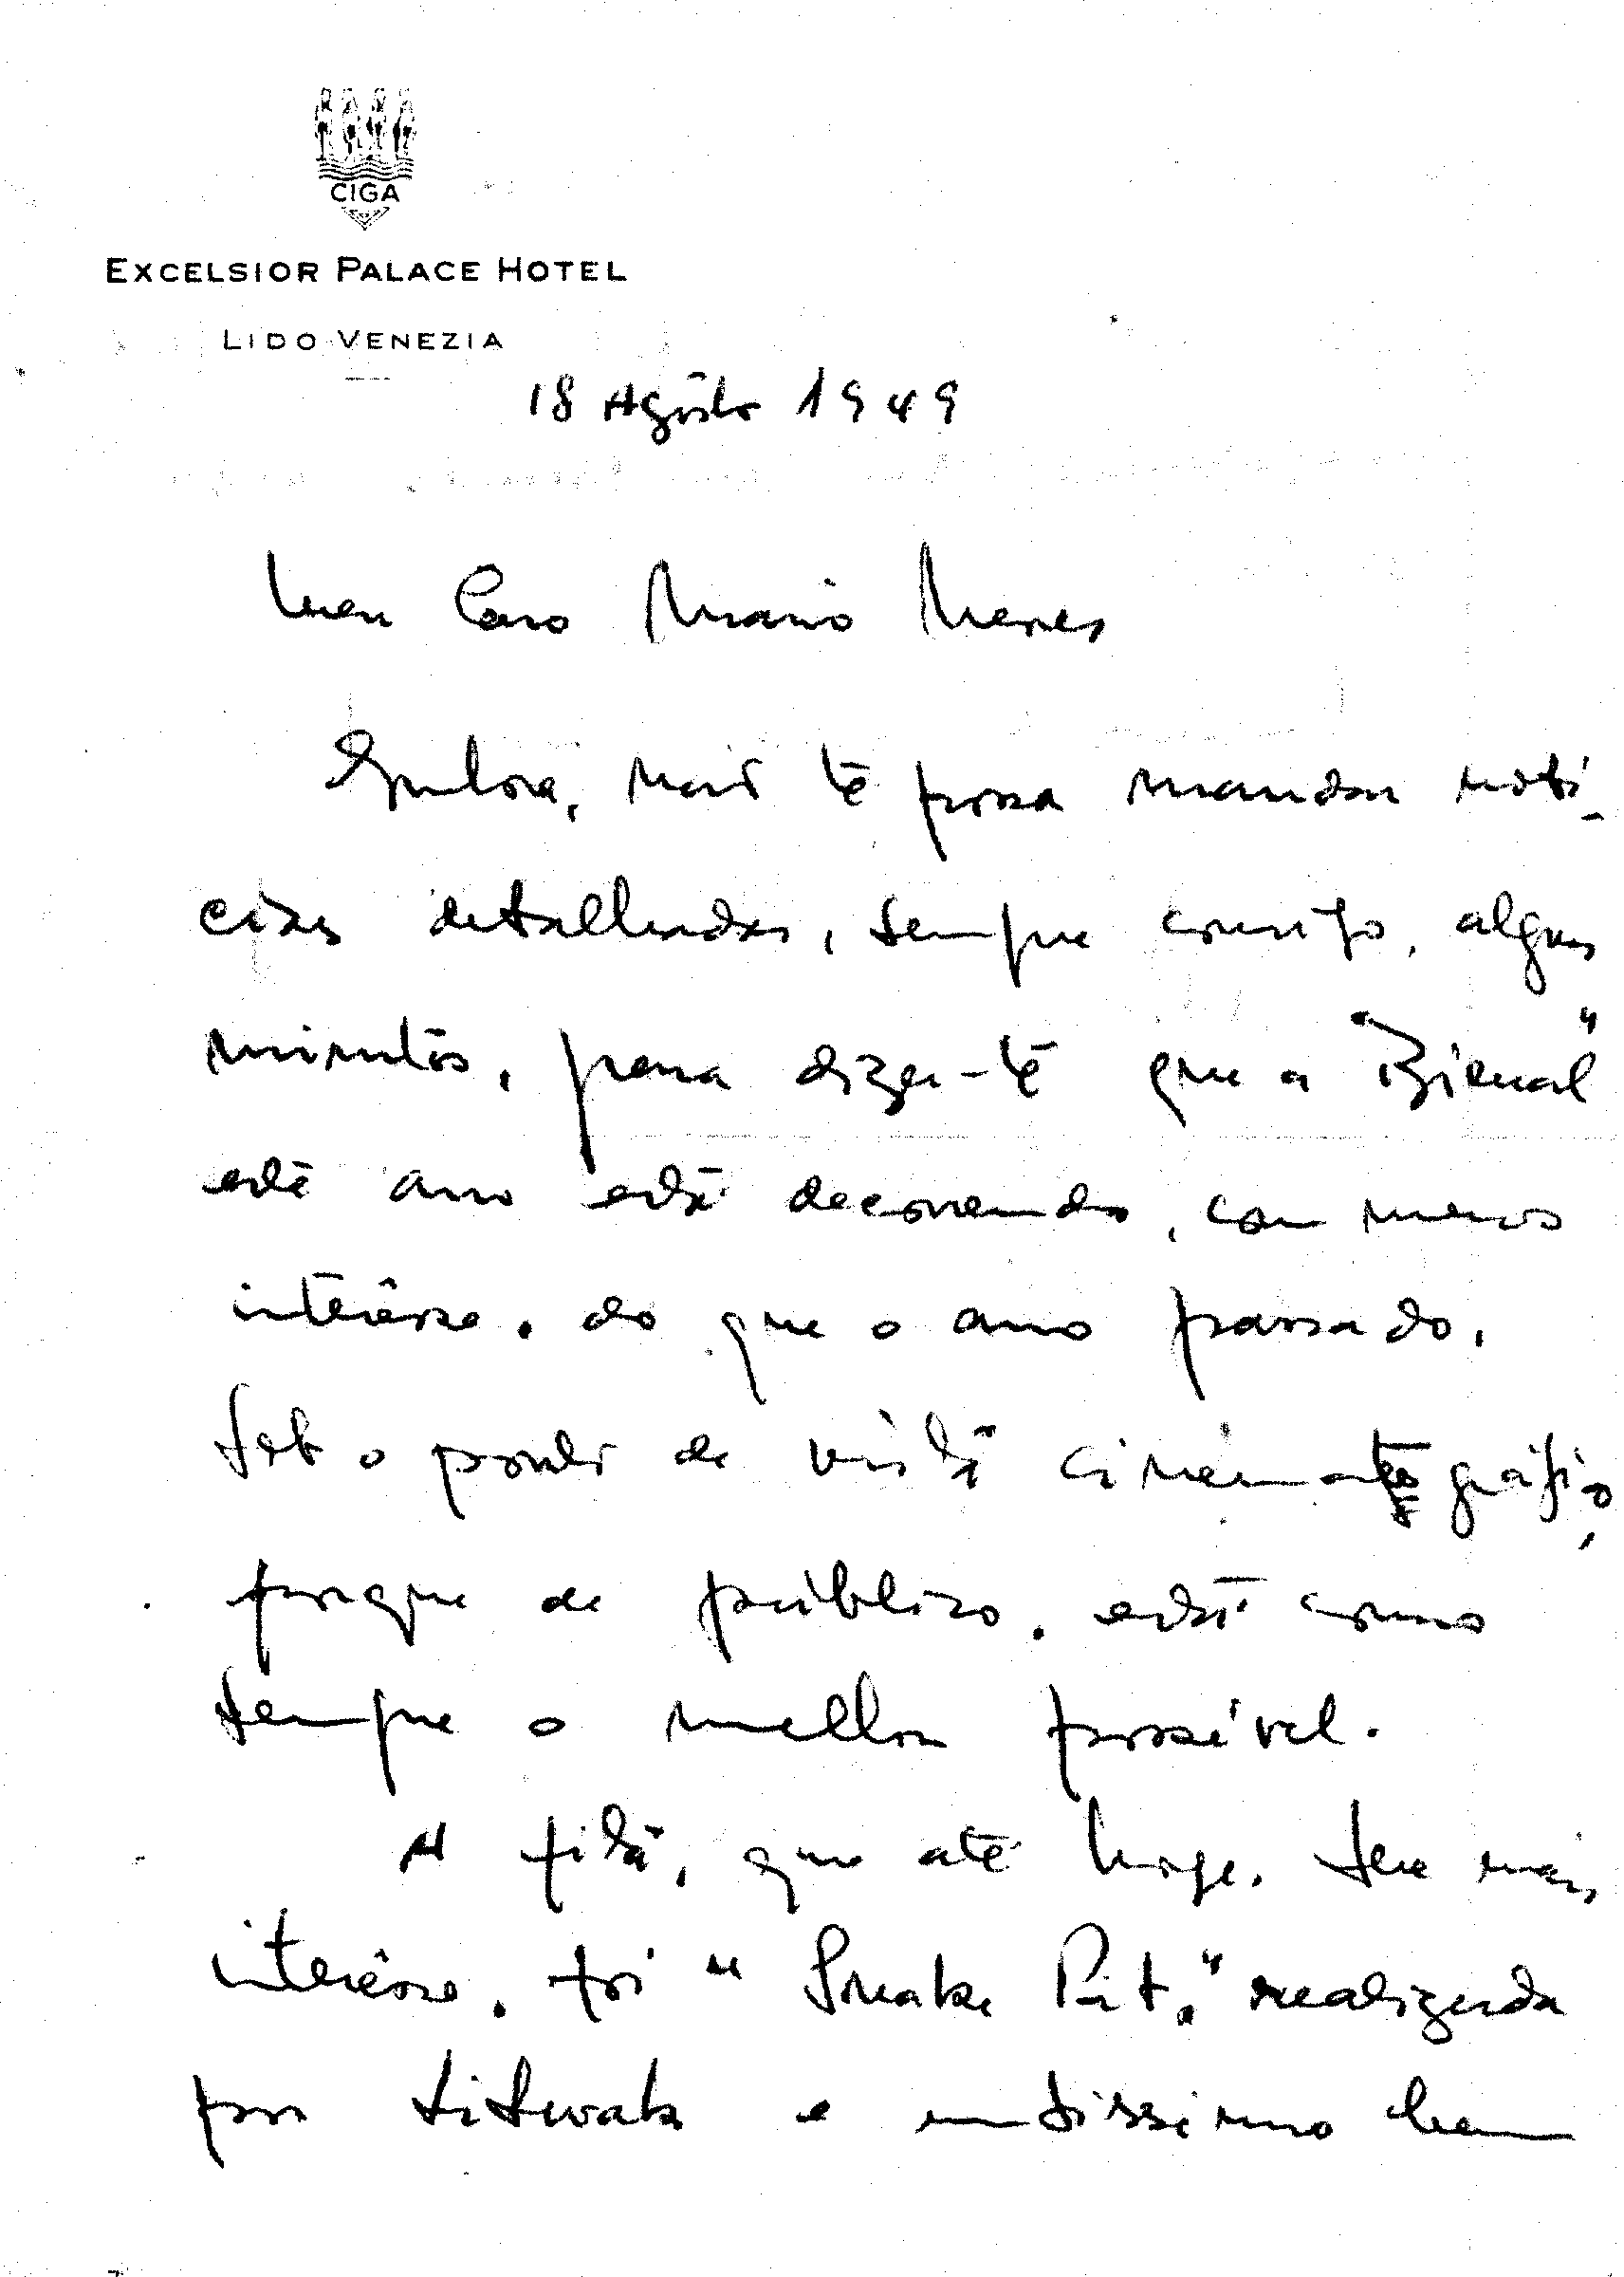 CIGA
EXCELSIOR PALACE HOTEL
LIDO VENEZIA
18 Agôsto 1949
Meu Caro Mario Nenes
Embora, não te possa mandar notí-
cias detalhadas, sempre consigo, alguns
minutos, para dizer-te que a "Bienal"
este ano está decorrendo, com menos
interêsse, do que o ano passado,
Sob o ponto de vista cinematográfico,
porque de público, está como
sempre o melhor possível.
A fita, que até hoje, teve mais
interêsse, foi "Snake Pit," realizada
por Litwak e muitissimo bem